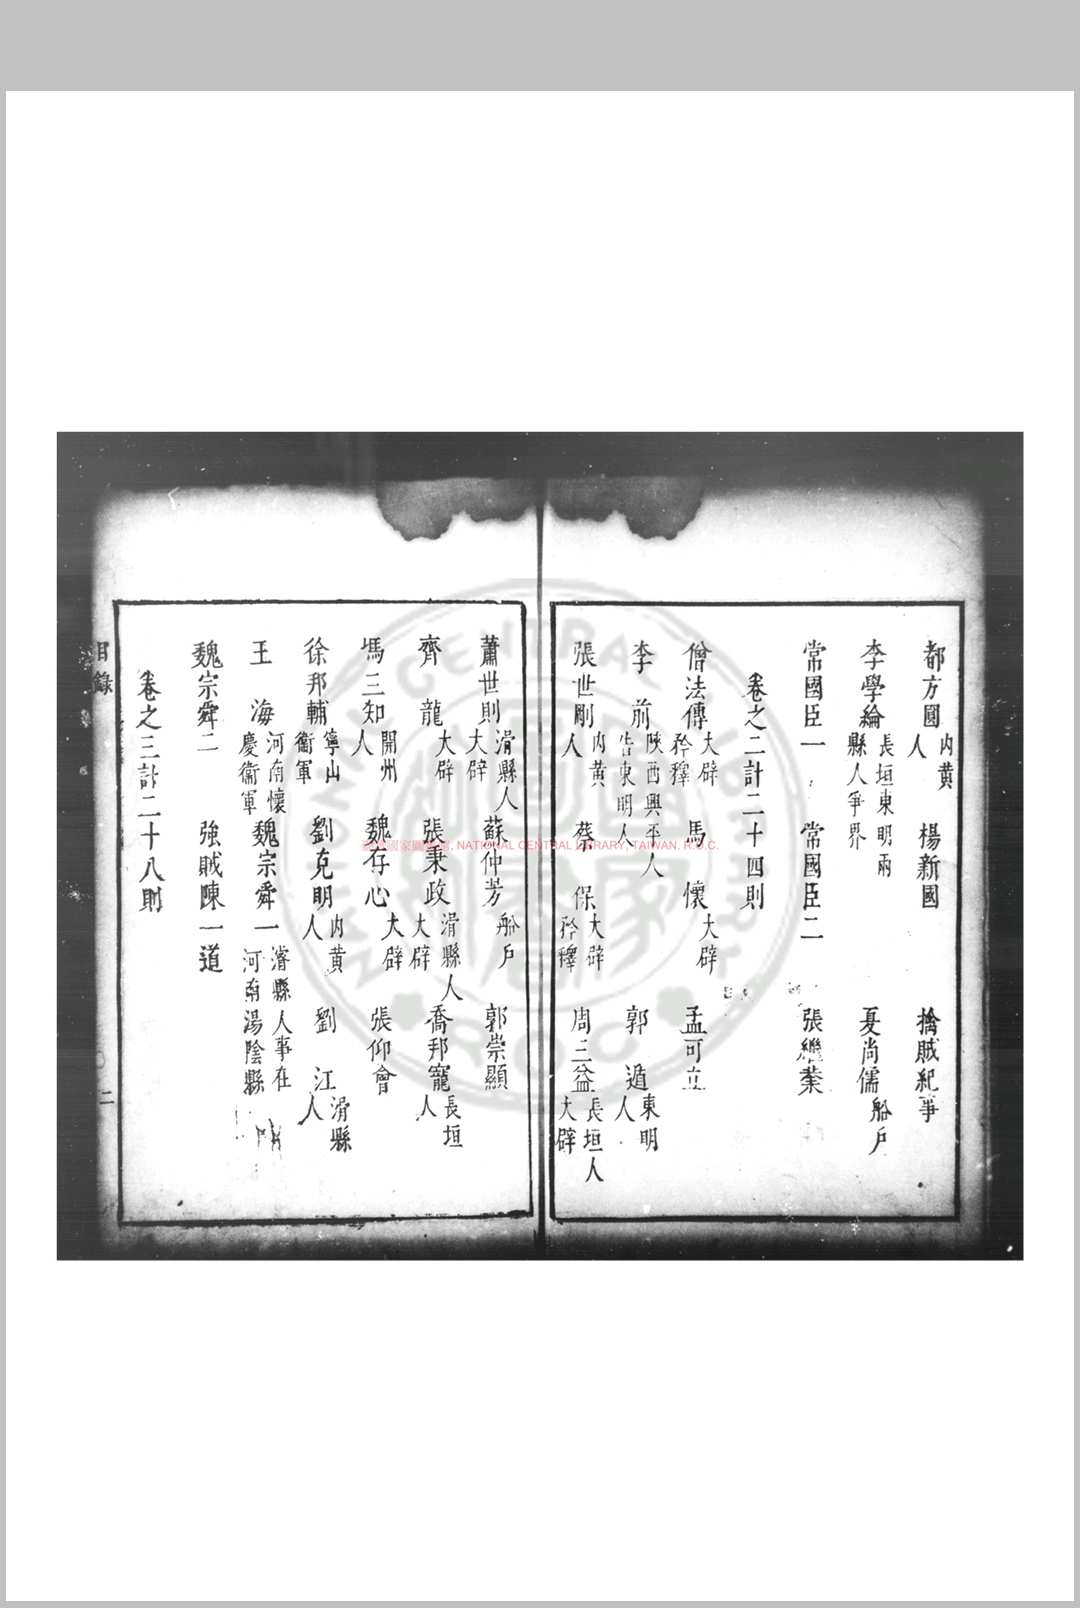 都方圓内黄人 楊新國 擒賊紀事
李學綸長垣東明兩縣人爭界 夏尚儒船戶
常國臣一 常國臣二 張繼業
卷之二計二十四則
僧法傳大辟矜釋 馬懷大辟 孟可立
李前陝西興平人告東明人 郭遁東明人
張世剛内黄人 蔡保大辟矜釋 周三益長垣人大辟
蕭世則滑縣人大辟 蘇仲芳船戶 郭崇顯
齊龍大辟 張秉政滑縣人大辟 喬邦寵長垣人
馮三知開州人 魏存心大辟 張仰會
徐邦輔寧山衞軍 劉克明内黄人 劉江滑縣人
王海河南懷慶衞軍 魏宗舜一濬縣人事在河南湯陰縣
魏宗舜二 強賊陳一道
卷之三計二十八則
目錄
二
國家圖書館, NATIONAL CENTRAL LIBRARY, TAIWAN, R.O.C.
NATIONAL CENTRAL LIBRARY
R.O.C.